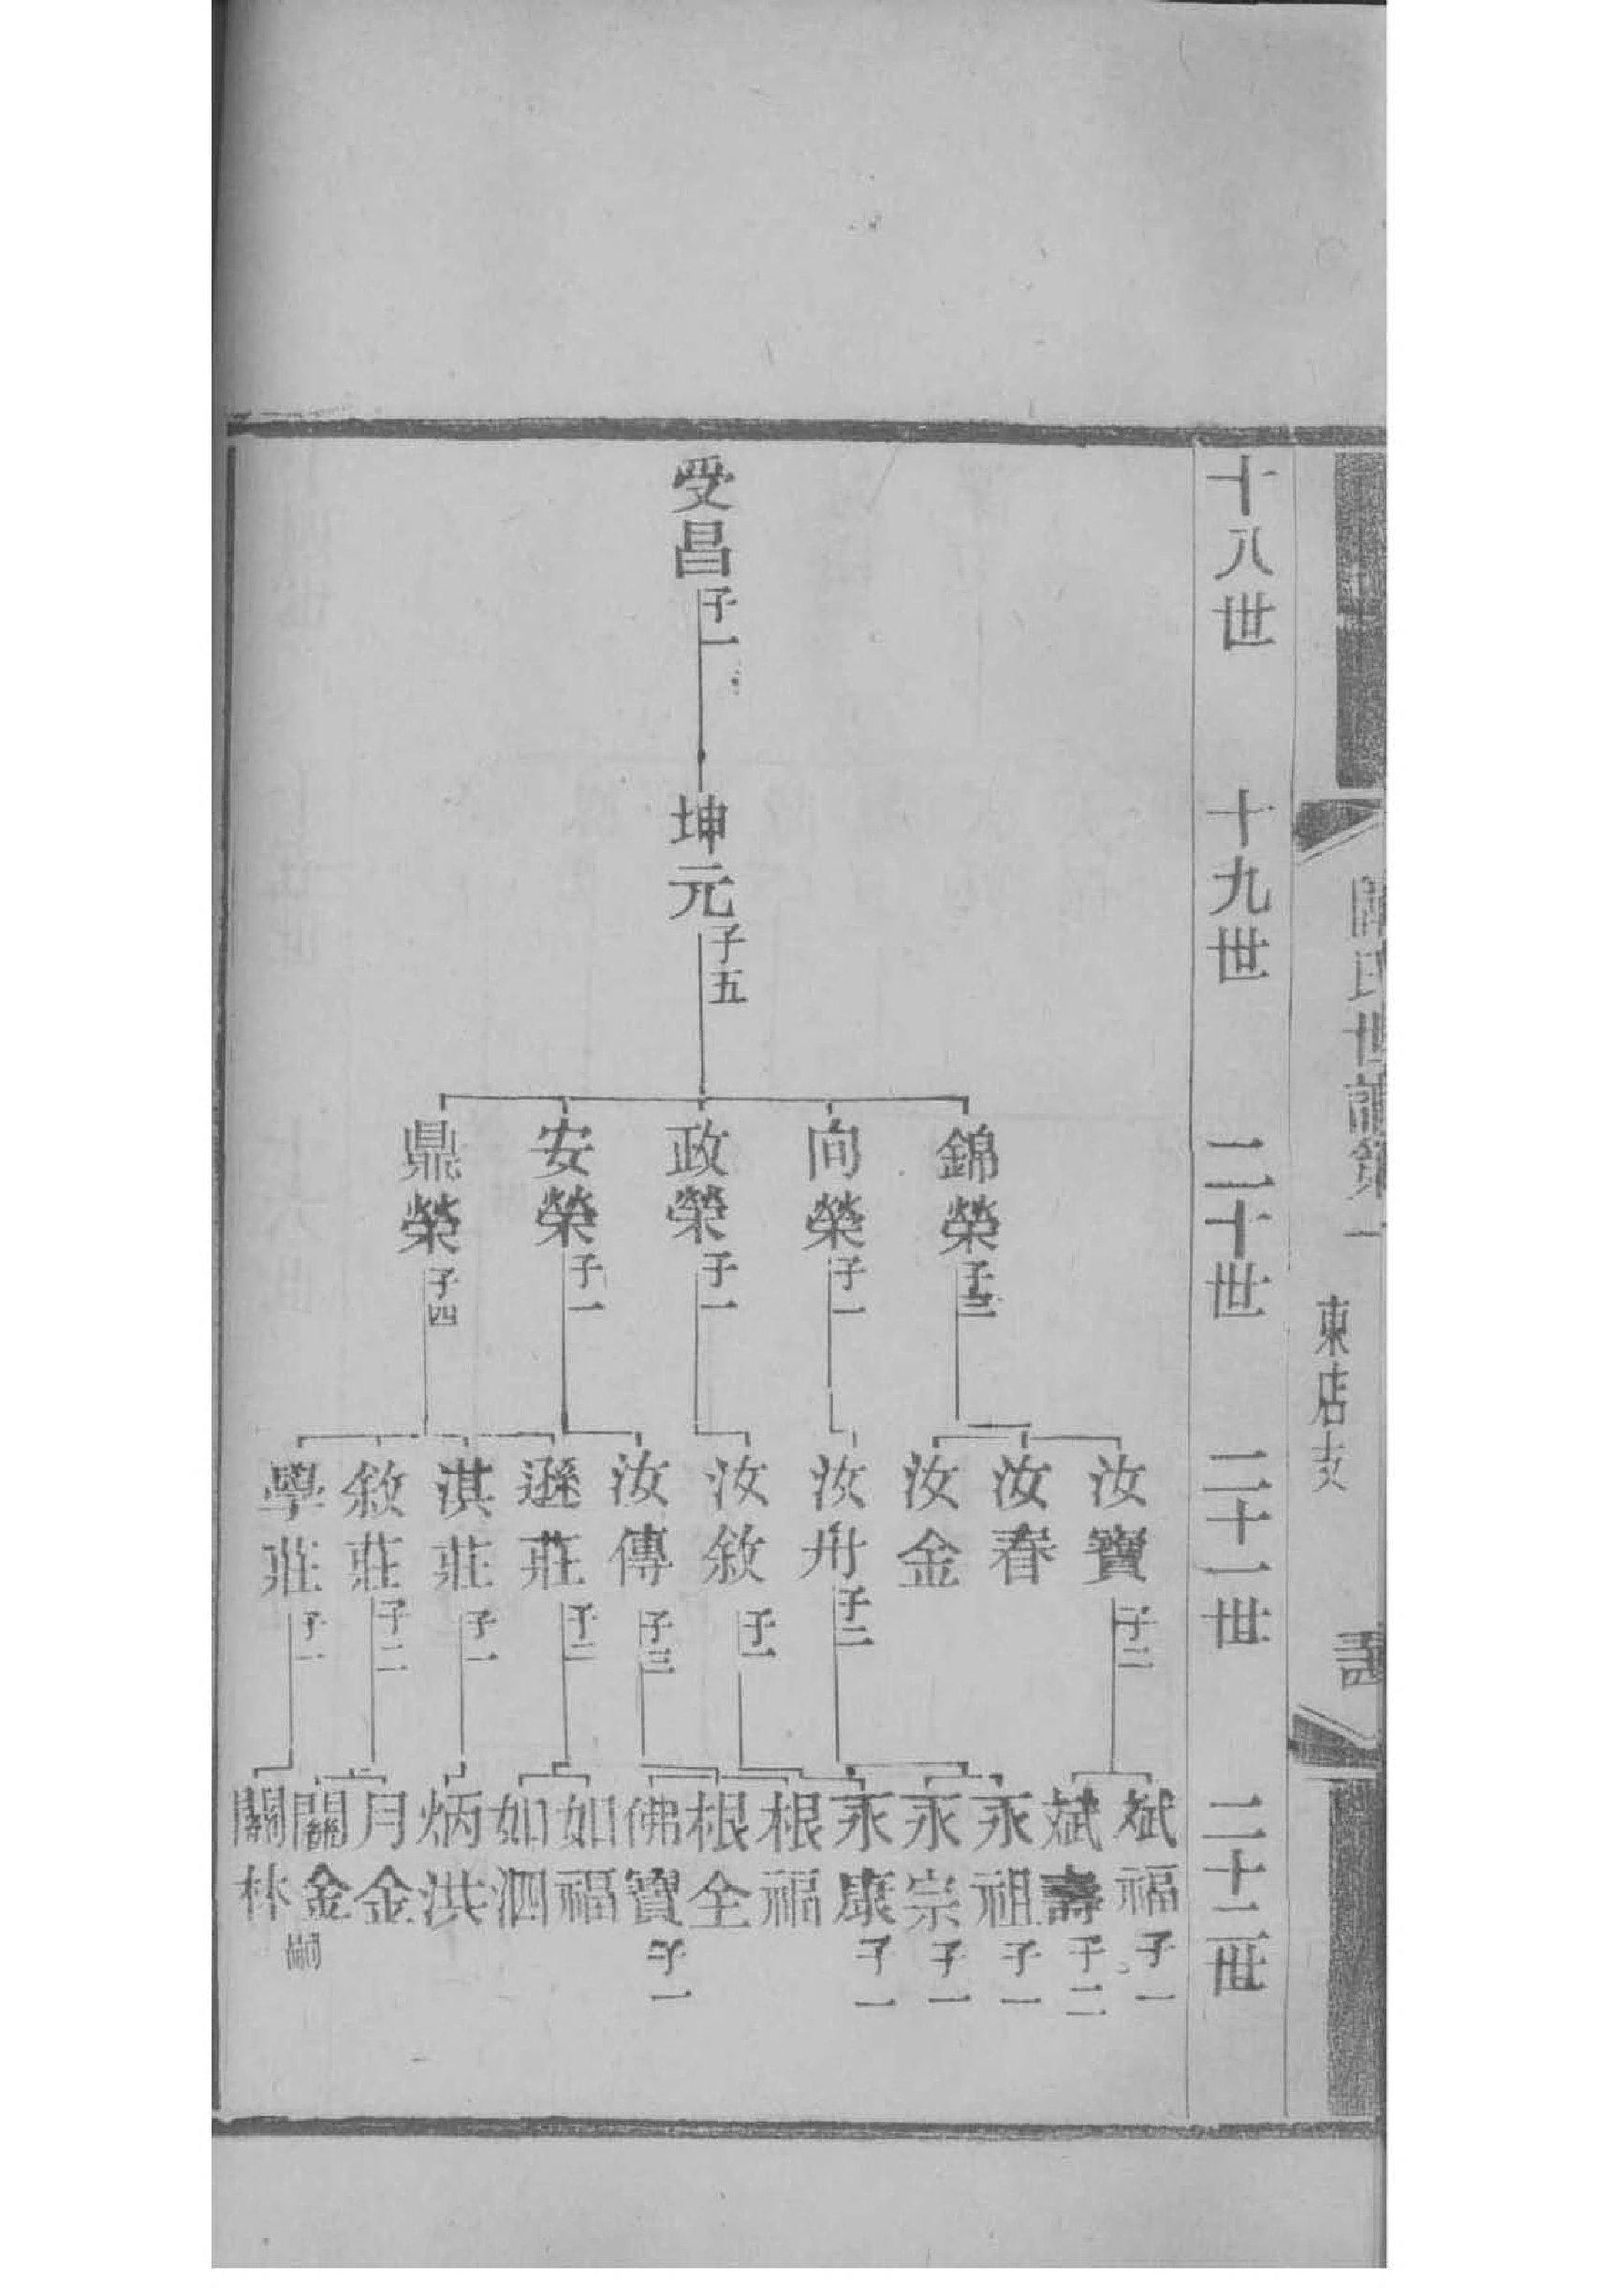 氏世譜第一
東店支
十八世
十九世
二十世
二十一世
二十二世
受昌 子一
坤元 子五
錦榮 子三
向榮 子一
政榮 子一
安榮 子一
鼎榮 子四
汝寶 子二
汝春
汝金
汝舟 子二
汝敘 子一
汝傳 子三
遜莊 子二
淇莊 子一
敘莊 子二
學莊 子一
斌福 子一
斌壽 子二
永祖 子一
永宗 子一
永康 子一
根福
根全
佛寶 子一
如福
如泗
炳洪
月金
關金 嗣
關林